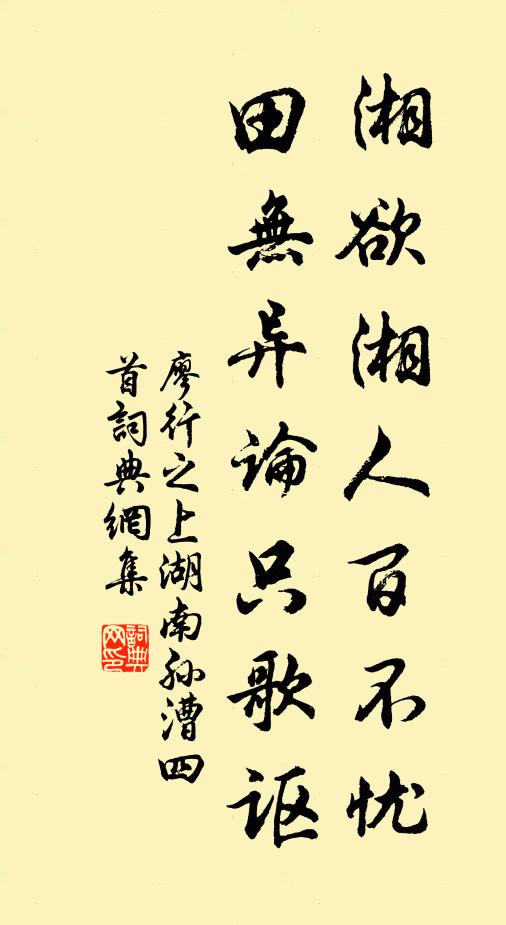 湘欲湘人百不忧
田無异論只歌讴
廖行之上湖南孙漕四
首詞典網集
詞典網印